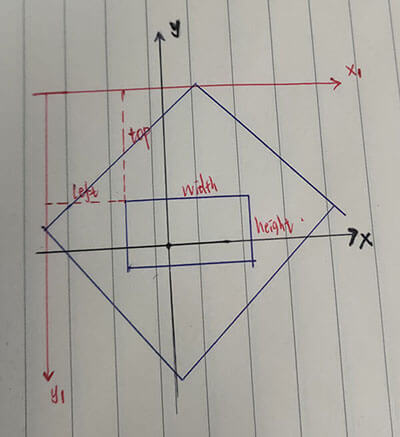 y
x₁
top
left
width
height
x
y₁